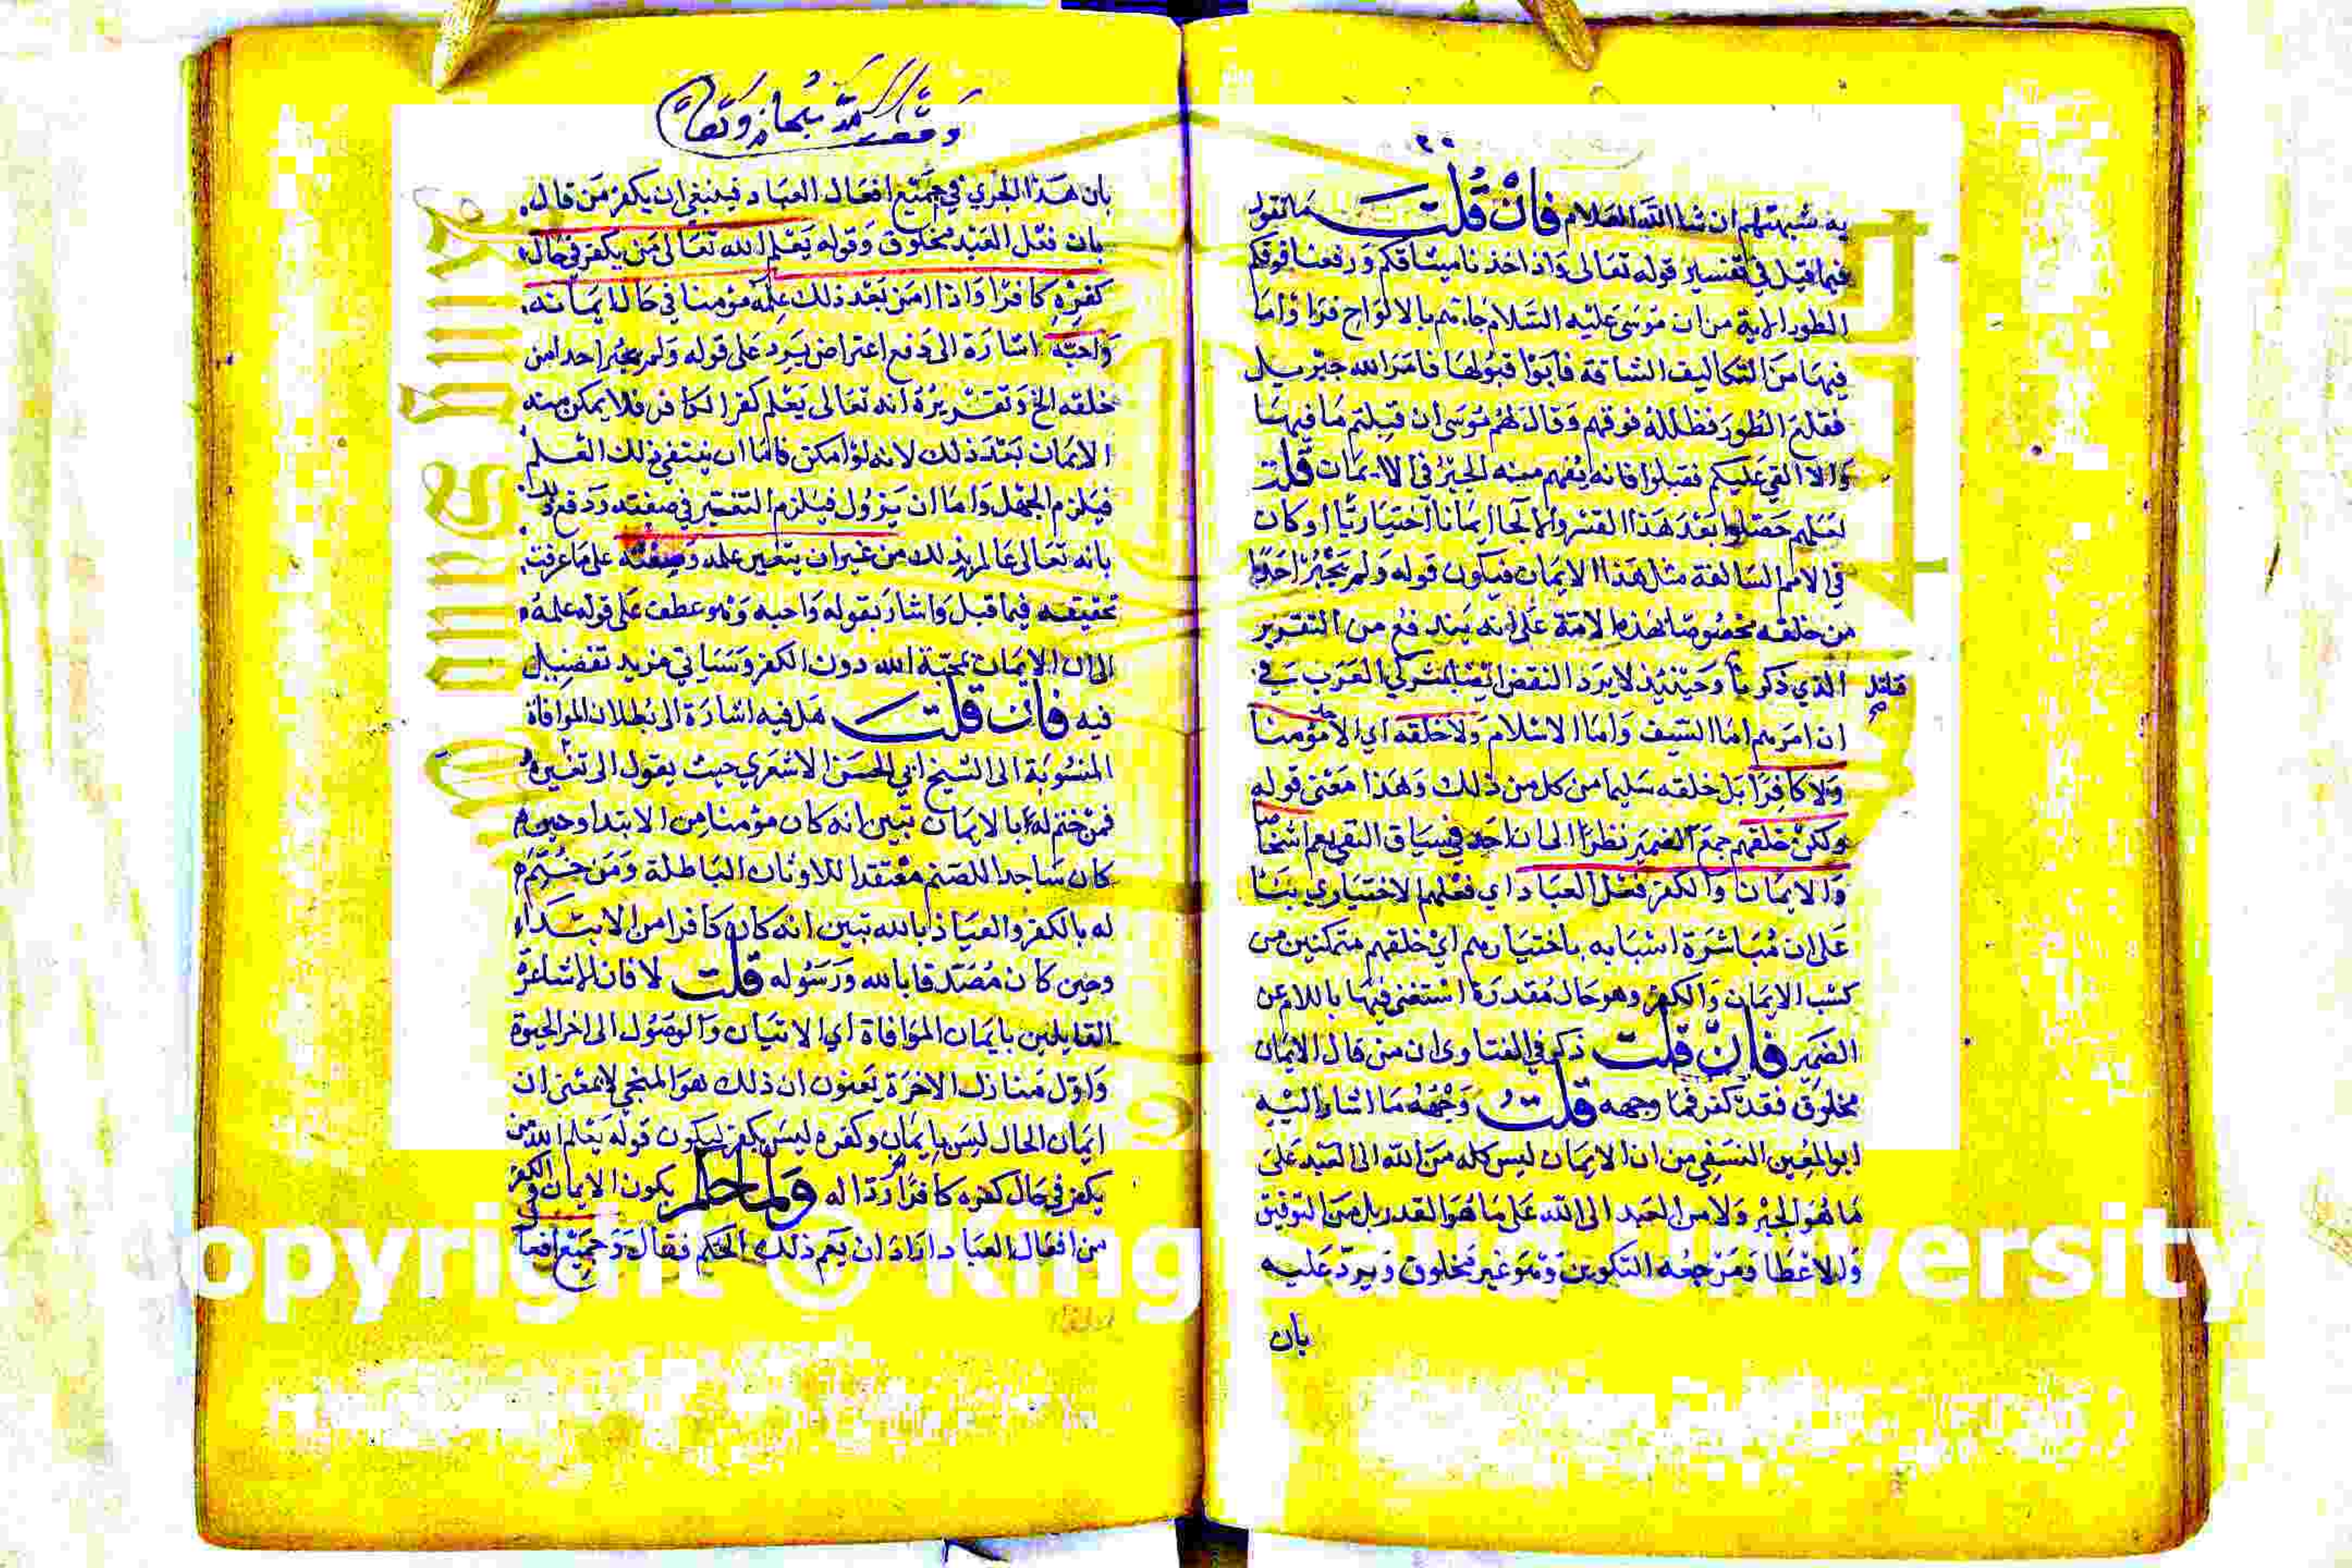 ٢٠
به شبهتهم ان شا الله العلام فان قلت ما تقول
فيما قيل في تفسير قوله تعالى واذ اخذنا ميثاقكم ورفعنا فوقكم
الطور الاية من ان موسى عليه السلام جاءهم بالالواح فراوا ما
فيها من التكاليف الشاقة فابوا قبولها فامر الله جبريل
فقلع الطور فظلله فوقهم وقال لهم موسى ان قبلتم ما فيها
والا القي عليكم فقبلوا فانه يفهم منه الجبر في الايمان قلت
لعلهم حصلوا بعد هذا القسر والالجا ايمانا اختياريا او كان
في الامم السالفة مثل هذا الايمان فيكون قوله ولم يجبر احدا
من خلقه مخصوصا بهذه الامة على انه يندفع من التقرير
الذي ذكرنا وحينئذ لا يرد النقض ايضا بمشركي العرب في
ان امرهم اما السيف واما الاسلام ولا خلقه اي الا مؤمنا
ولا كافرا بل خلقه سليما من كل من ذلك وهذا معنى قوله
ولكن خلقهم جمع الضمير نظرا الى ان احد في سياق النفي يعم اشخاصا
والايمان والكفر فعل العباد اي فعلهم الاختياري بنا
على ان مباشرة اسبابه باختيارهم اي خلقهم متمكنين من
كسب الايمان والكفر وهو حال مقدرة استغنى فيها باللام عن
الضمير فان قلت ذكر في الفتاوى ان من قال الايمان
مخلوق فقد كفر فما وجهه قلت وجهه ما اشار اليه
ابو المعين النسفي من ان الايمان ليس كله من الله الى العبد على
ما هو الجبر ولا من العبد الى الله على ما هو القدر بل من التوفيق
والاعطا ومرجعه التكوين وهو غير مخلوق ويرد عليه
بان
بان هذا الجري في جميع افعال العباد فينبغي ان يكفر من قال
بان فعل العبد مخلوق وقوله يعلم الله تعالى من يكفر في حال
كفره كافرا واذا امن بعد ذلك علمه مؤمنا في حال ايمانه
واحبه اشارة الى دفع اعتراض يرد على قوله ولم يجبر احدا من
خلقه الخ وتقريره انه تعالى يعلم كفر الكافر فلا يمكن منه
الايمان بعد ذلك لانه لو امكن فاما ان ينتفي ذلك العلم
فيلزم الجهل واما ان يزول فيلزم التغير في صفته ودفع
بانه تعالى عالم بذلك من غير ان يتغير علمه وصفته على ما عرفت
تحقيقه فيما قبل واشار بقوله واحبه وهو عطف على قوله علمه
الى ان الايمان بمحبة الله دون الكفر وسياتي مزيد تفضيل
فيه فان قلت هل فيه اشارة الى بطلان الموافاة
المنسوبة الى الشيخ ابي الحسن الاشعري حيث يقول الى
فمن ختم له بالايمان تبين انه كان مؤمنا من الابتدا وحين
كان ساجدا للصنم معتقدا للاوثان الباطلة ومن ختم
له بالكفر والعياذ بالله تبين انه كان كافرا من الابتداء
وحين كان مصدقا بالله ورسوله قلت لا فان الاشاعرة
القايلين بايمان الموافاة اي الاتيان والوصول الى اخر الحيوة
واول منازل الاخرة يعنون ان ذلك هو المنجي لا بمعنى ان
ايمان الحال ليس بايمان وكفره ليس بكفر ليكون قوله يعلم الله من
يكفر في حال كفره كافرا ردا له ولما حكم بكون الايمان والكفر
من افعال العباد اراد ان يعم ذلك الحكم فقال وجميع افعال